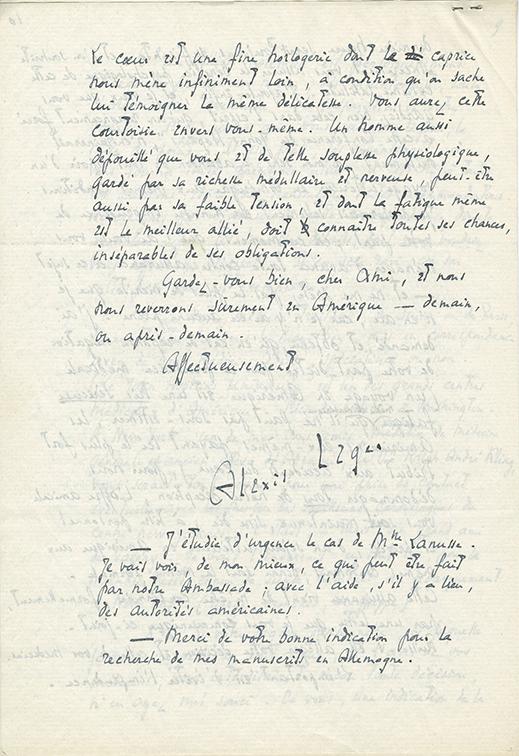 9
Le cœur est une fine horlogerie dont le caprice
nous mène infiniment loin, à condition qu'on sache
lui témoigner la même délicatesse. Vous aurez cette
courtoisie envers vous-même. Un homme aussi
dépouillé que vous, et de telle souplesse physiologique,
gardé par sa richesse médullaire et nerveuse, peut-être
aussi par sa faible tension, et dont la fatigue même
est le meilleur allié, doit connaître toutes ses chances,
inséparables de ses obligations.
Gardez-vous bien, cher Ami, et nous
nous reverrons sûrement en Amérique — demain,
ou après-demain.
Affectueusement
Alexis Leger
— J'étudie d'urgence le cas de Mme Lanusse.
Je vais voir, de mon mieux, ce qui peut être fait
par notre Ambassade, avec l'aide, s'il y a lieu,
des autorités américaines.
— Merci de votre bonne indication pour la
recherche de mes manuscrits en Allemagne.